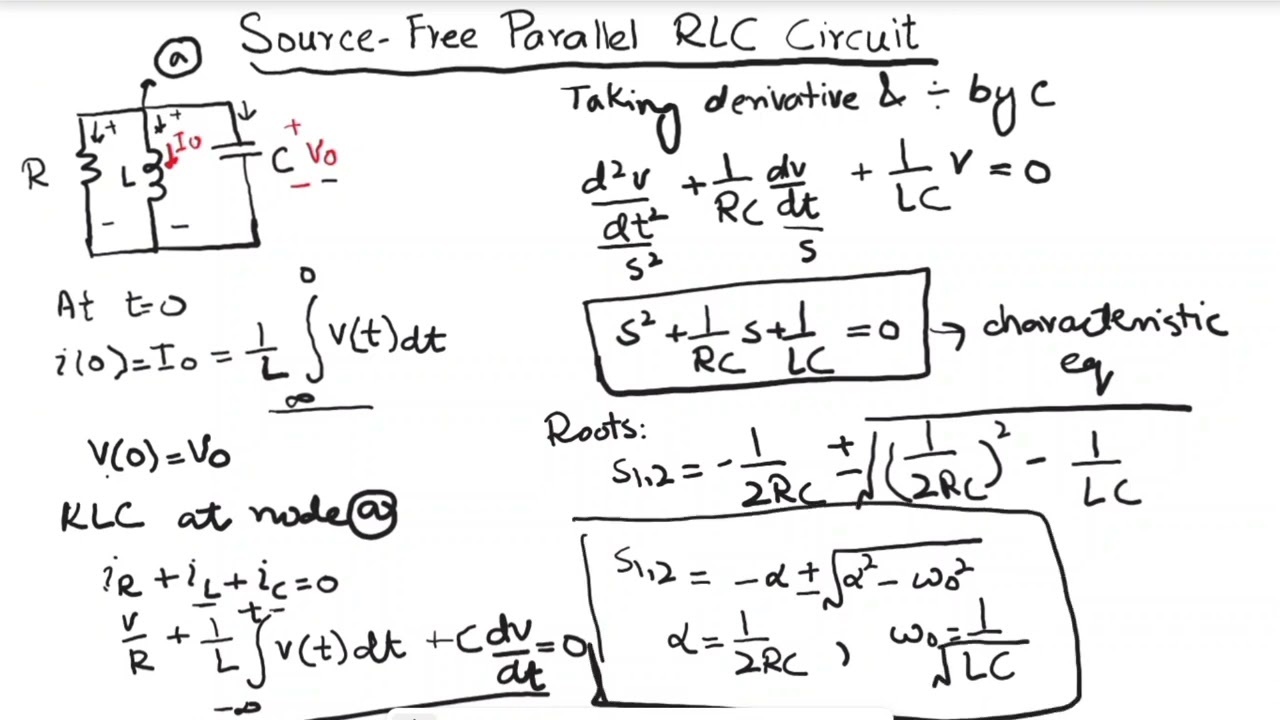 Source-Free Parallel RLC Circuit
a
R
+
-
L
+
-
I0
C
+
V0
- -
At t=0
i(0)=I0 = 1/L ∫_∞^0 v(t)dt
V(0)=V0
KLC at node a
iR + iL + iC = 0
v/R + 1/L ∫_-∞^t v(t)dt + C dv/dt = 0
Taking derivative & ÷ by C
d²v/dt² + 1/RC dv/dt + 1/LC v = 0
s² s
s² + 1/RC s + 1/LC = 0 → characteristic
eq
Roots:
s1,2 = - 1/2RC ± √(1/2RC)² - 1/LC
s1,2 = -α ± √α² - ω0²
α = 1/2RC , ω0 = 1/√LC